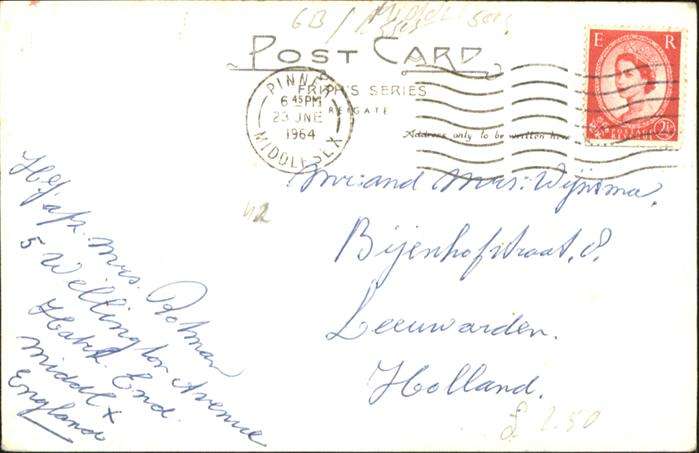 GB /
POST CARD
FRITH'S SERIES
REIGATE
Address only to be written here
PINNER
6 45PM
23 JNE
1964
MIDDLESEX
E R
2½
42
Mr: and Mrs: Wijnsma.
Bijenhofstraat. 8.
Leeuwarden.
Holland.
Mrs.
5 Wellington Avenue
Hatch End.
Middl x
England
£ 2.50